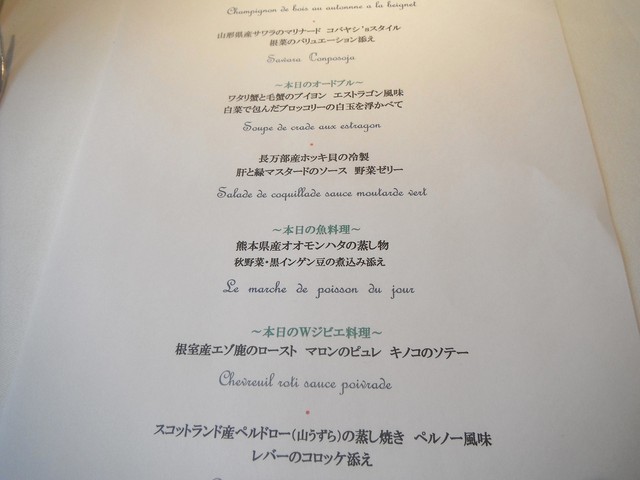 Champignon de bois au automnne a la beignet
山形県産サワラのマリナード コバヤシ'sスタイル
根菜のバリュエーション添え
Sawara Conposoja
～本日のオードブル～
ワタリ蟹と毛蟹のブイヨン エストラゴン風味
白菜で包んだブロッコリーの白玉を浮かべて
Soupe de crade aux estragon
長万部産ホッキ貝の冷製
肝と緑マスタードのソース 野菜ゼリー
Salade de coquillade sauce moutarde vert
～本日の魚料理～
熊本県産オオモンハタの蒸し物
秋野菜・黒インゲン豆の煮込み添え
Le marche de poisson du jour
～本日のWジビエ料理～
根室産エゾ鹿のロースト マロンのピュレ キノコのソテー
Chevreuil roti sauce poivrade
スコットランド産ペルドロー(山うずら)の蒸し焼き ペルノー風味
レバーのコロッケ添え